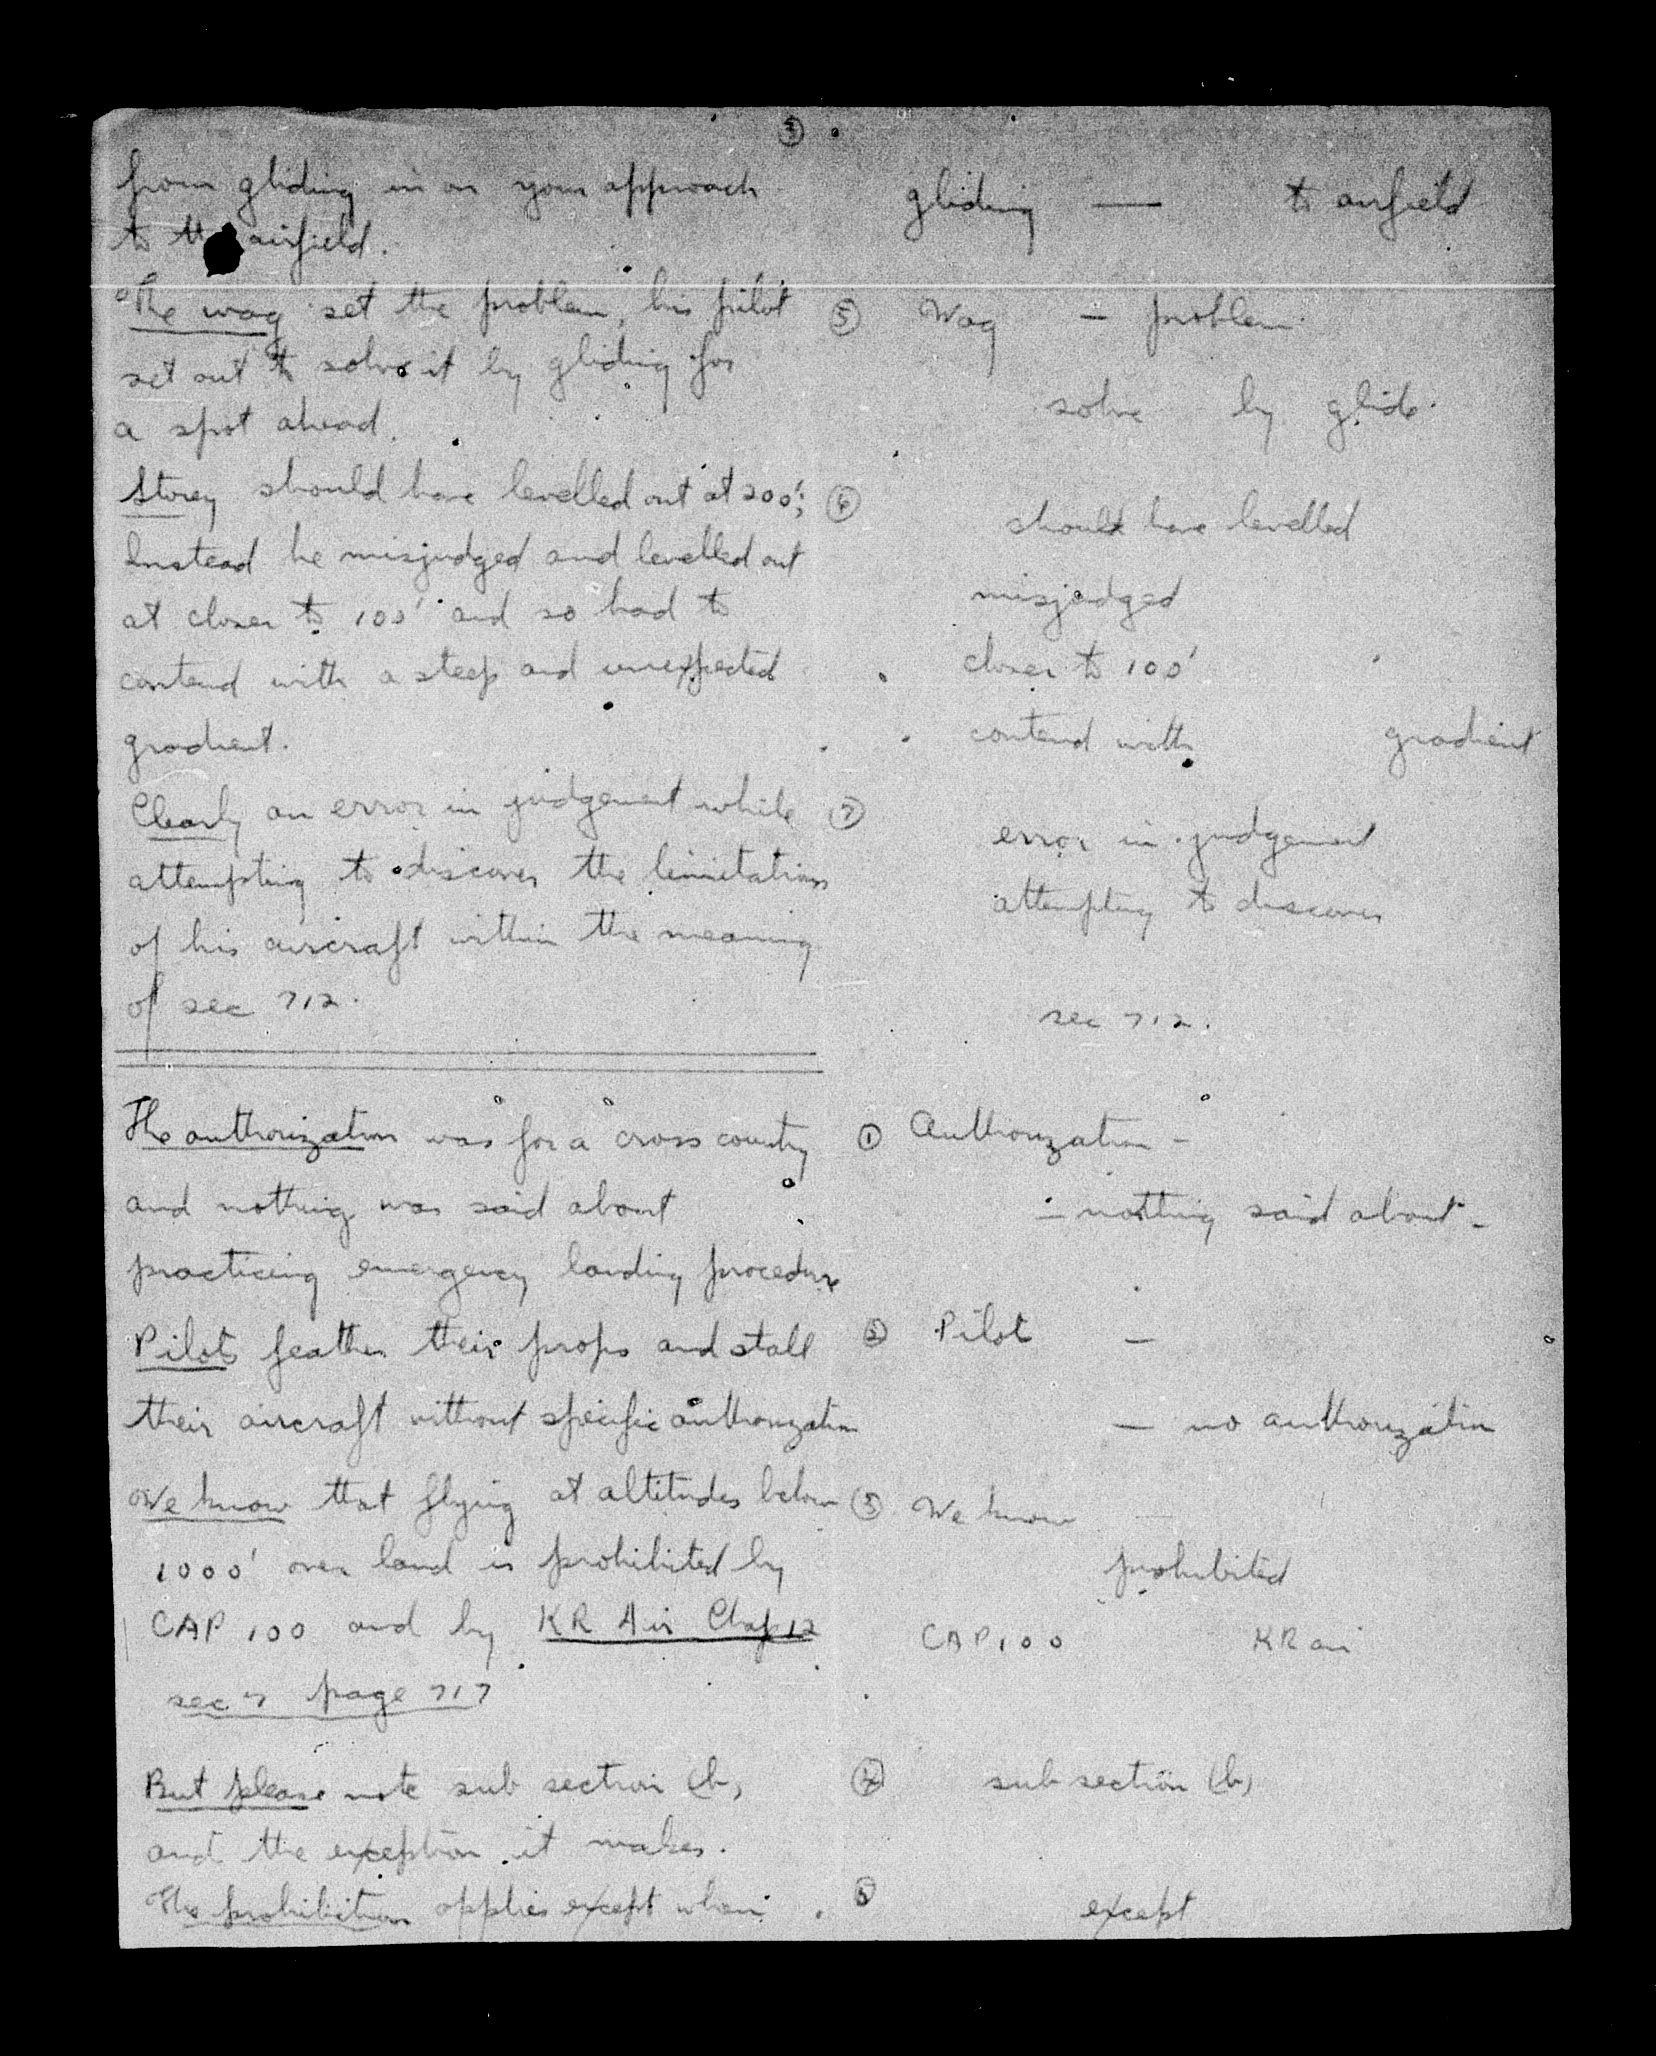 3
from gliding in on your approach
to the airfield.
The wag set the problem, his pilot
set out to solve it by gliding for
a spot ahead.
Storey should have levelled out at 200';
Instead he misjudged and levelled out
at closer to 100' and so had to
contend with a steep and unexpected
gradient.
Clearly an error in judgement while
attempting to discover the limitations
of his aircraft within the meaning
of sec 712.
The authorization was for a cross country
and nothing was said about
practicing emergency landing procedure
Pilots feather their props and stall
their aircraft without specific authorization
We know that flying at altitudes below
1000' over land is prohibited by
CAP 100 and by KR Air Chap 12
sec 7 page 717
But please note sub section (b)
and the exception it makes.
The prohibition applies except when
gliding — to airfield
5 Wag – problem.
solve by glide.
6 should have levelled
misjudged
closer to 100'
contend with gradient
7 error in judgement
attempting to discover
sec 712.
1 Authorization –
– nothing said about –
2 Pilot –
– no authorization
3 We know
prohibited
CAP 100 KR air
4 sub section (b)
5 except